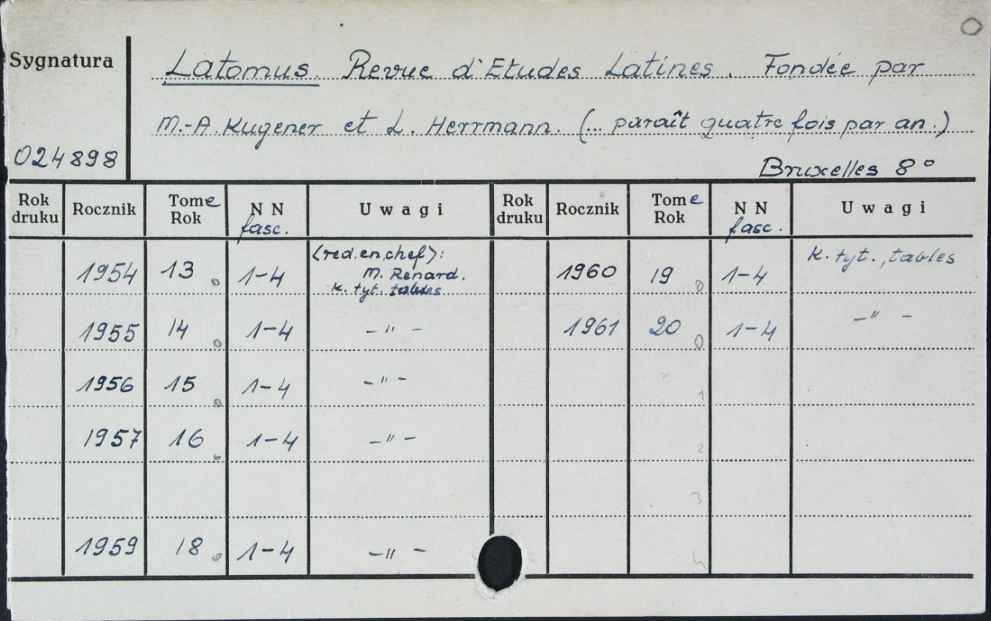 O
Sygnatura
Latomus. Revue d'Etudes Latines. Fondée par
M.-A. Kugener et L. Herrmann. (... paraît quatre fois par an.)
024898
Bruxelles 8°
Rok druku Rocznik Tome Rok NN fasc. Uwagi Rok druku Rocznik Tome Rok NN fasc. Uwagi
1954 13 0 1-4 (red. en chef): M. Renard. k. tyt. tables 1960 19 0 1-4 k. tyt., tables
1955 14 0 1-4 -"- 1961 20 0 1-4 -"-
1956 15 0 1-4 -"- 1
1957 16 1-4 -"- 2
3
1959 18 0 1-4 -"- 4